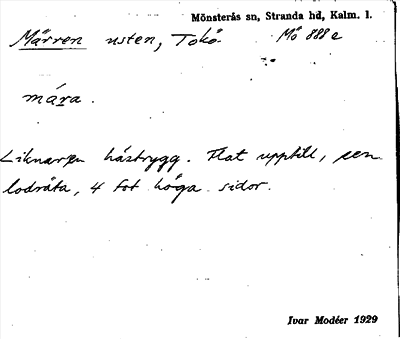 Mönsterås sn, Stranda hd, Kalm. l.
Märren usten, Tokö. Mö 888 e
måra.
Liknar en hästrygg. Flat upptill, sen
lodräta, 4 fot höga sidor.
Ivar Modéer 1929